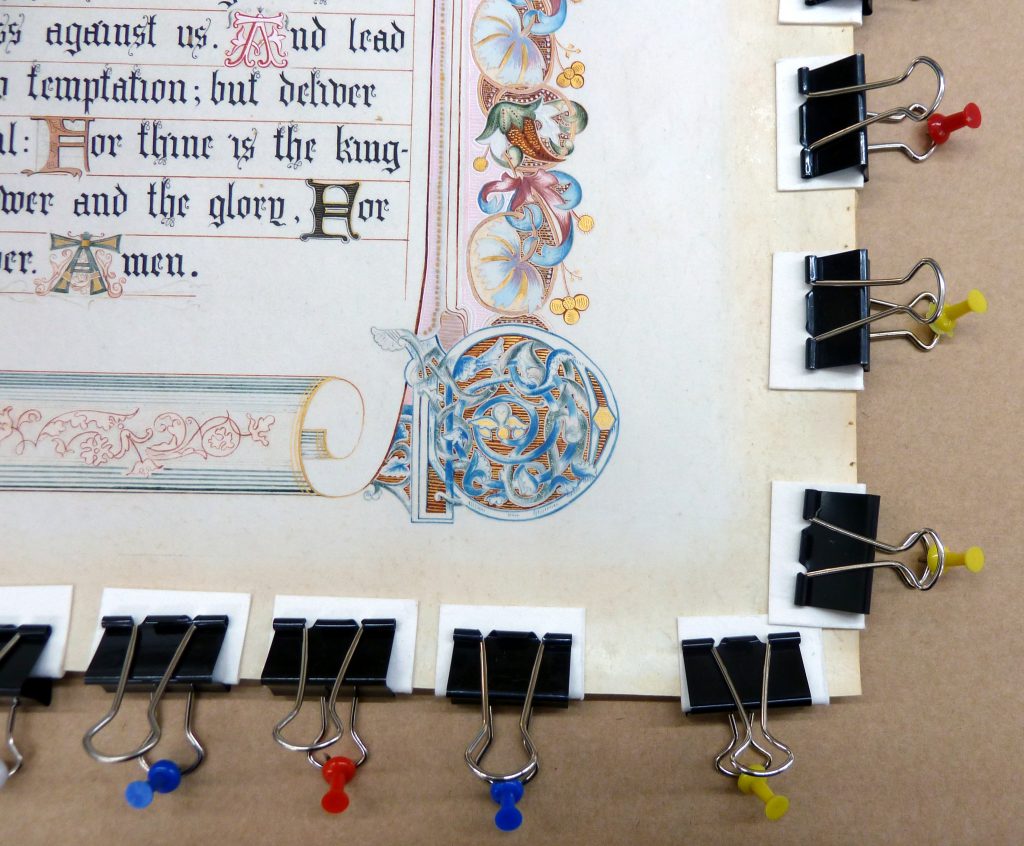 ss against us. And lead
temptation; but deliver
al: For thine is the king-
wer and the glory, For
er. Amen.